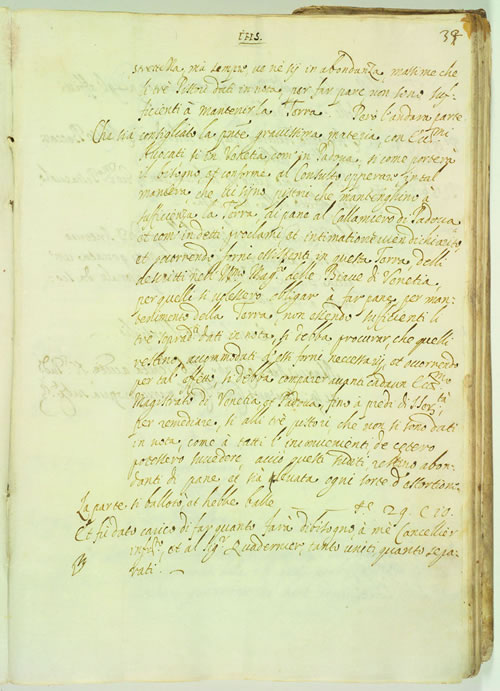 IHS.
39
strettezza, mà sempre ve ne sij in abondanza, massime che
li trè Pistori dati in nota, per far pane non sono suf-
ficienti à mantenir la Terra. Però l'andarà parte
Che sia consigliato la pnte gravissima materia, con Ecc.mi
Avocati sì in Venetia, com' in Padova, sì come porterà
il bisogno, et conforme al Consulto operarà in tal
maniera che vi siino pistri che mantenghino à
sufficienza la Terra di pane al Callamiero di Padova
et com' in detti proclami, et intimatione vien dichiarito
et occorrendo forni esistenti in questa Terra delli
descritti nell' Mag.to delle Biave di Venetia,
per quelli si potessero obligar à far pane, per man-
tenimento della Terra non essendo sufficienti li
trè soprad.ti dati in nota, si debba procurar, che quelli
restino accommodati di essi forni necessarij, et occorrendo
per tal' effetto, si debba comparer avanti cadaun Ecc.mo
Magistrato di Venetia et Padova, fino à piedi di S. Ser.tà
per remediare, sì alli trè pistori che non si sono dati
in nota, come à tutti l'inconvenienti che de cetero
potessero succedere, acciò questi sudditi restino abon-
danti di pane, et sia levata ogni sorte d'estortion.
La parte si ballotò, et hebbe balle 29. C. 10.
Et fù dato carico di far quanto farà di bisogno à mè Cancellier
infr.to, et al sig.r Quadernier, tanto uniti quanto sepa-
rati.